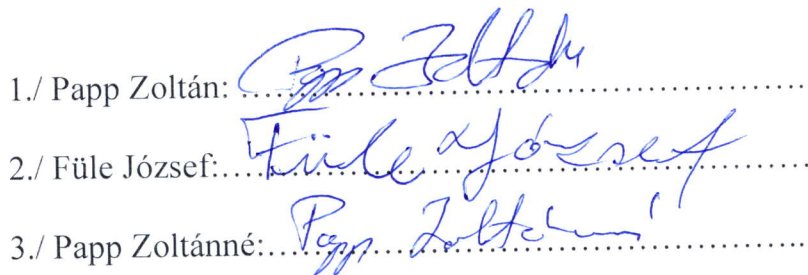 1./ Papp Zoltán: Papp Zoltán
2./ Füle József: Füle József
3./ Papp Zoltánné: Papp Zoltánné